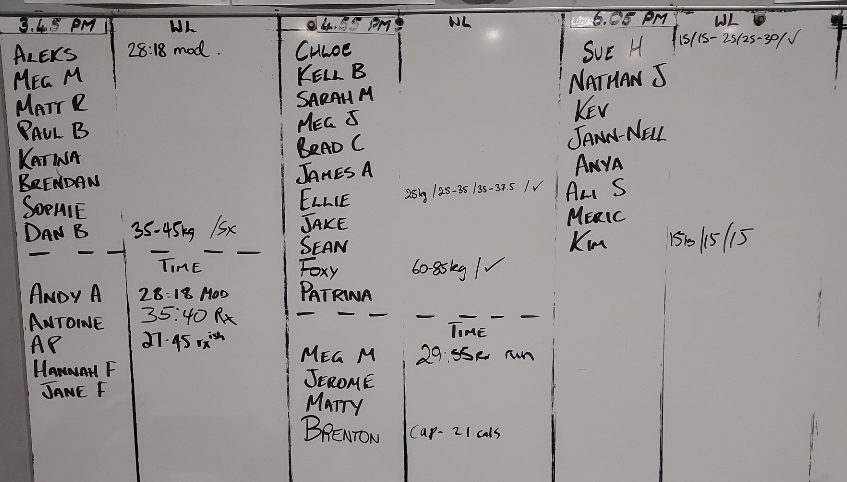 3.45 PM WL
ALEKS 28:18 mod.
MEG M
MATT R
PAUL B
KATINA
BRENDAN
SOPHIE
DAN B 35-45kg /5x
TIME
ANDY A 28:18 MOD
ANTOINE 35:40 Rx
AP 27.45 rx ish
HANNAH F
JANE F
4.55 PM WL
CHLOE
KELL B
SARAH M
MEG J
BRAD C
JAMES A
ELLIE 25kg /25-35 /35-37.5 /✓
JAKE
SEAN
FOXY 60-85kg /✓
PATRINA
TIME
MEG M 29:55 Rx run
JEROME
MATTY
BRENTON Cap- 21 cals
6.05 PM WL
SUE H 15/15- 25/25-30/✓
NATHAN J
KEV
JANN-NELL
ANYA
ALI S
MERIC
KIM 15kg/15/15